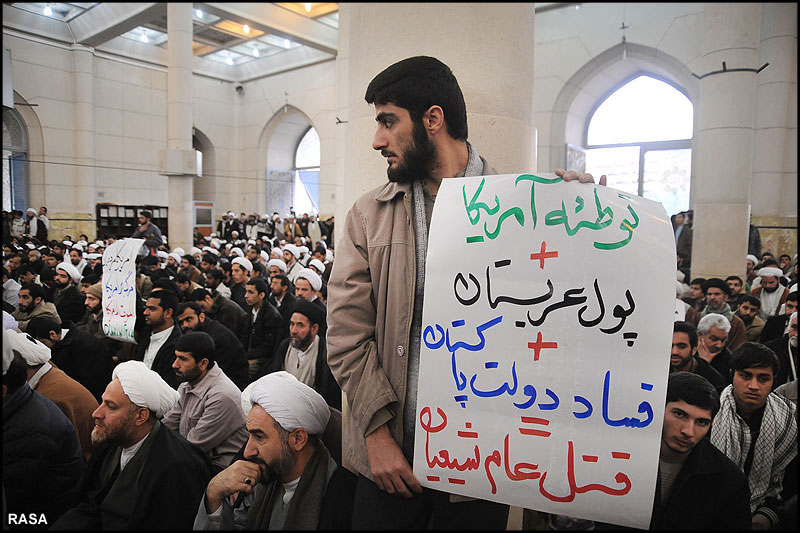 توطئه آمریکا
+
پول عربستان
+
فساد دولت پاکستان
=
قتل عام شیعیان
RASA